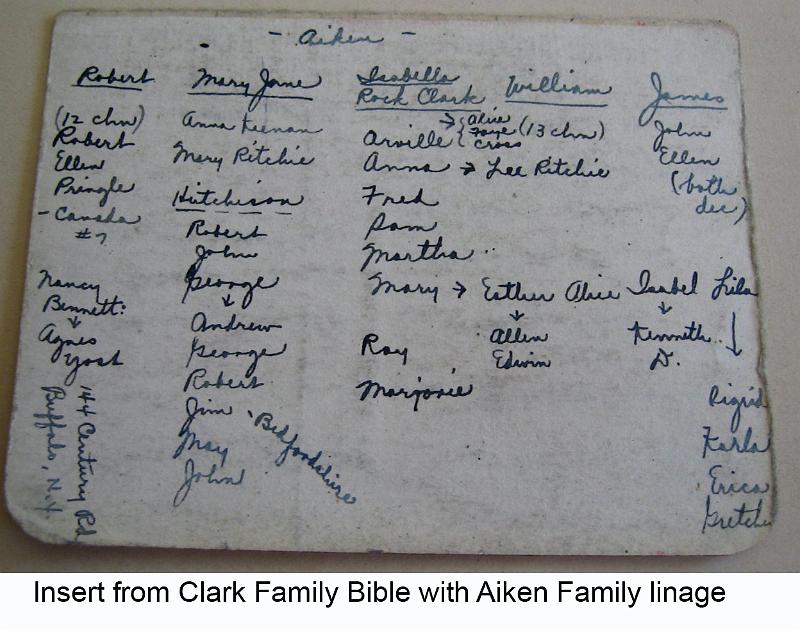 - Aiken -
Robert
(12 chn)
Robert
Ellen
Pringle
- Canada
#7
Nancy
Bennett:
Agnes
Yost
144 Century Rd
Buffalo, N.Y.
Mary Jane
Anna Keenan
Mary Ritchie
Hitchison
Robert
John
George
Andrew
George
Robert
Jim - Bedfordshire
May
John
Isabella
Rock Clark
→ Alice
Arville { Faye
Cross
Anna → Lee Ritchie
Fred
Sam
Martha
Mary → Esther Alice Isabel Lila
Allen
Edwin
Kenneth
D.
Sigrid
Karla
Erica
Gretche
Roy
Marjorie
William
(13 chn)
James
John
Ellen
(both
dec)
Insert from Clark Family Bible with Aiken Family linage